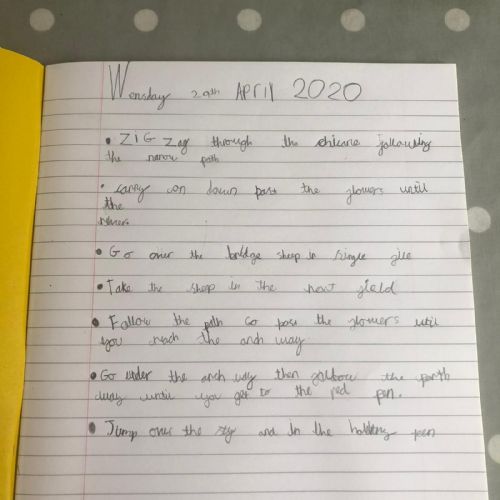 Wensday 29th APril 2020
• ZIG Zag through the chicane following
the narow path
• carry on down past the flowers until
the
rivers
• Go over the bridge sheep in single file
• Take the sheep in the next field
• Follow the path Go past the flowers until
you reach the arch way
• Go under the arch way then follow the path
way until you get to the red pen.
• Jump over the sty and in the holding peen